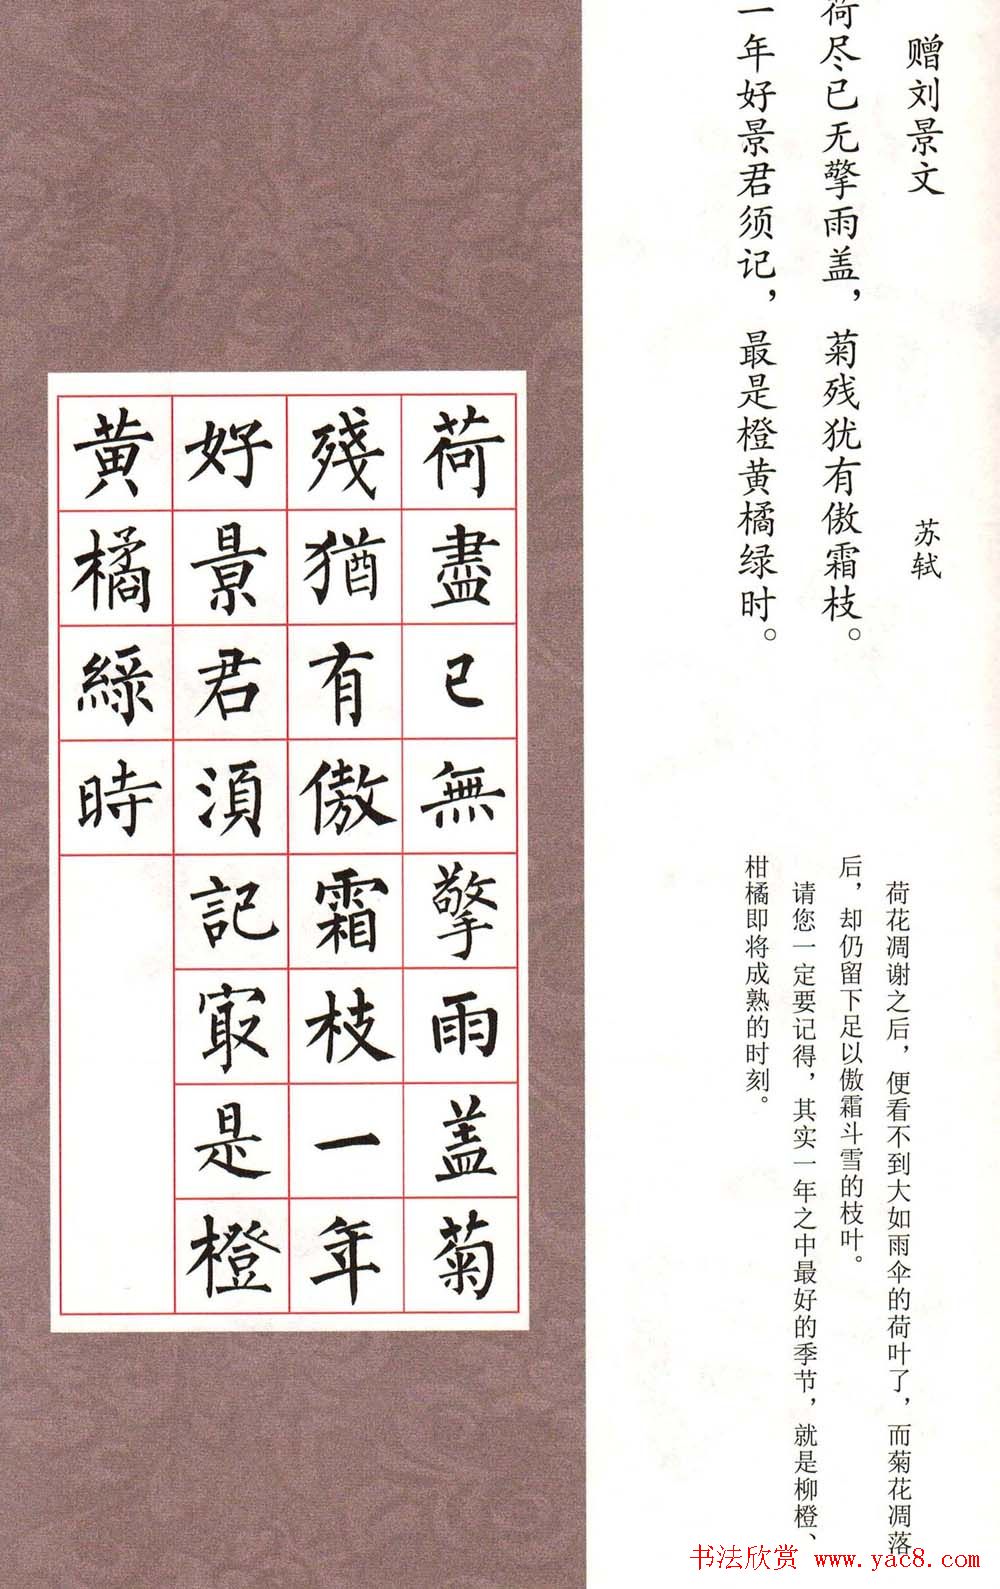 赠刘景文
苏轼
荷尽已无擎雨盖，菊残犹有傲霜枝。
一年好景君须记，最是橙黄橘绿时。
荷花凋谢之后，便看不到大如雨伞的荷叶了，而菊花凋落
后，却仍留下足以傲霜斗雪的枝叶。
请您一定要记得，其实一年之中最好的季节，就是柳橙、
柑橘即将成熟的时刻。
荷盡已無擎雨盖菊
殘猶有傲霜枝一年
好景君須記㝡是橙
黄橘綠時
书法欣赏 www.yac8.com